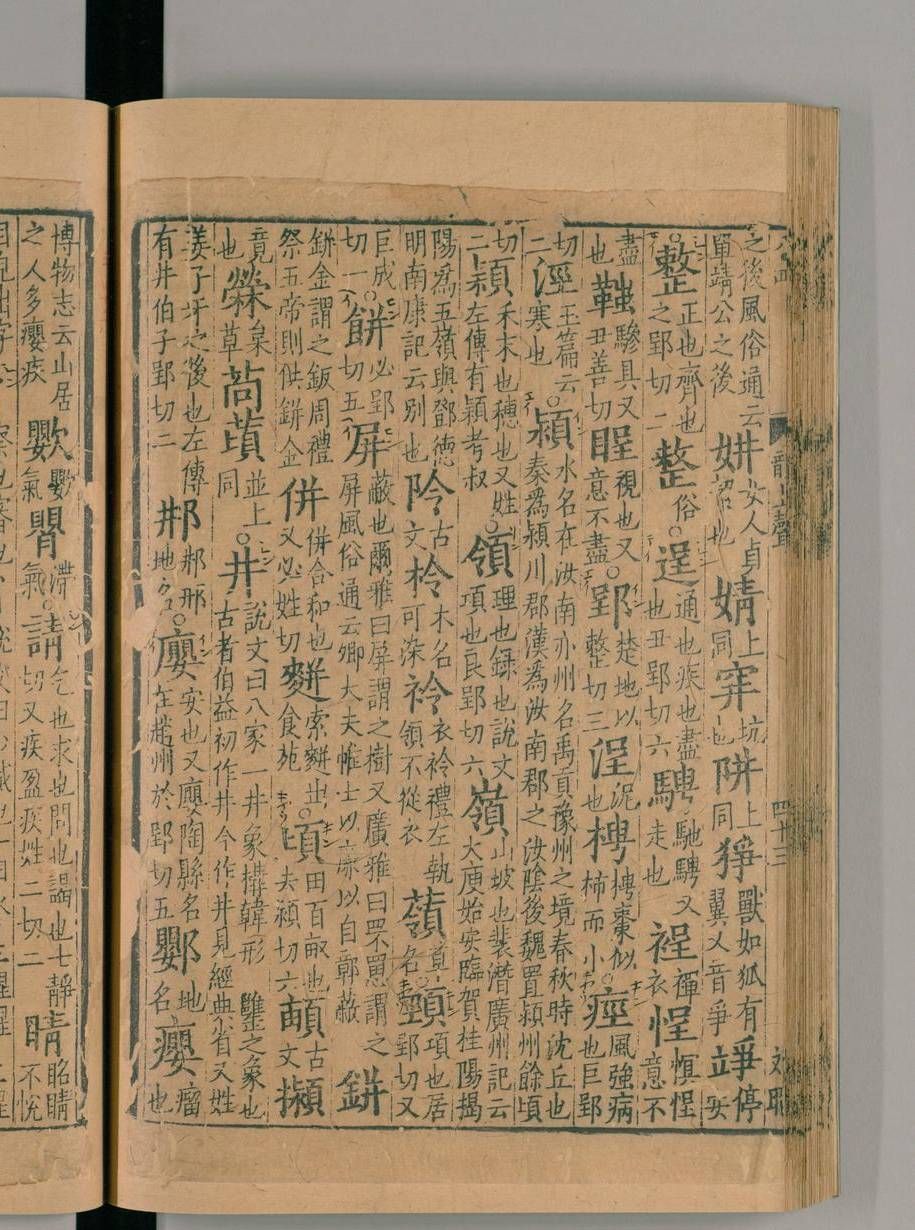 之後風俗通云單靖公之後 妌女人貞絜也 婧上同 穽坑也 阱上同 猙獸如狐有翼又音爭 竫停安
○整正也齊也之郢切二 整俗 ○逞通也疾也盡也丑郢切六 騁馳騁又走也 裎禪衣 悜愼悜意不
盡也 𩋆驂具又丑善切 睈視也又意不盡 ○郢楚地以整切三 浧泥也 梬梬棗似柿而小 ○痙風強病也巨郢
切玉篇云二 涇寒也 ○潁水名在汝南亦州名禹貢豫州之境春秋時沈丘也秦爲潁川郡漢爲汝南郡之汝陰後魏置潁州餘頃
切二 穎禾末也穗也又姓左傳有潁考叔 ○領理也錄也說文項也良郢切六 嶺山坡也裴潛廣州記云大庾始安臨賀桂陽揭
陽爲五嶺與鄧德明南康記云別也 阾古文 柃木名可染 衿衣衿禮左執領不從衣 䔖草名 ○頸項也居郢切又
巨成切一 ○餅必郢切五 屏蔽也爾雅曰屏謂之樹又廣雅曰罘罳謂之屏風俗通云卿大夫帷士以廉以自鄣蔽 鉼
鉼金謂之鈑周禮祭五帝則供鉼金 併併合和也又必姓切 䴵索䴵出食苑 ○頃田百畝也去潁切六 䔛古文 䫆
竟也 檾枲草 苘䔛並上同 ○井說文曰八家一井象構韓形 𦉥之象也古者伯益初作井今作井見經典省又姓
姜子牙之後也左傳有井伯子郢切二 邢邢郉地名 ○廮安也又廮陶縣名在趙州於郢切五 䣐地名 癭瘤也
博物志云山居之人多癭疾 㰳㰳氣 䁝滯氣 ○請乞也求也問也謁也七靜切又疾盈疾姓二切二 睛眳睛不悅